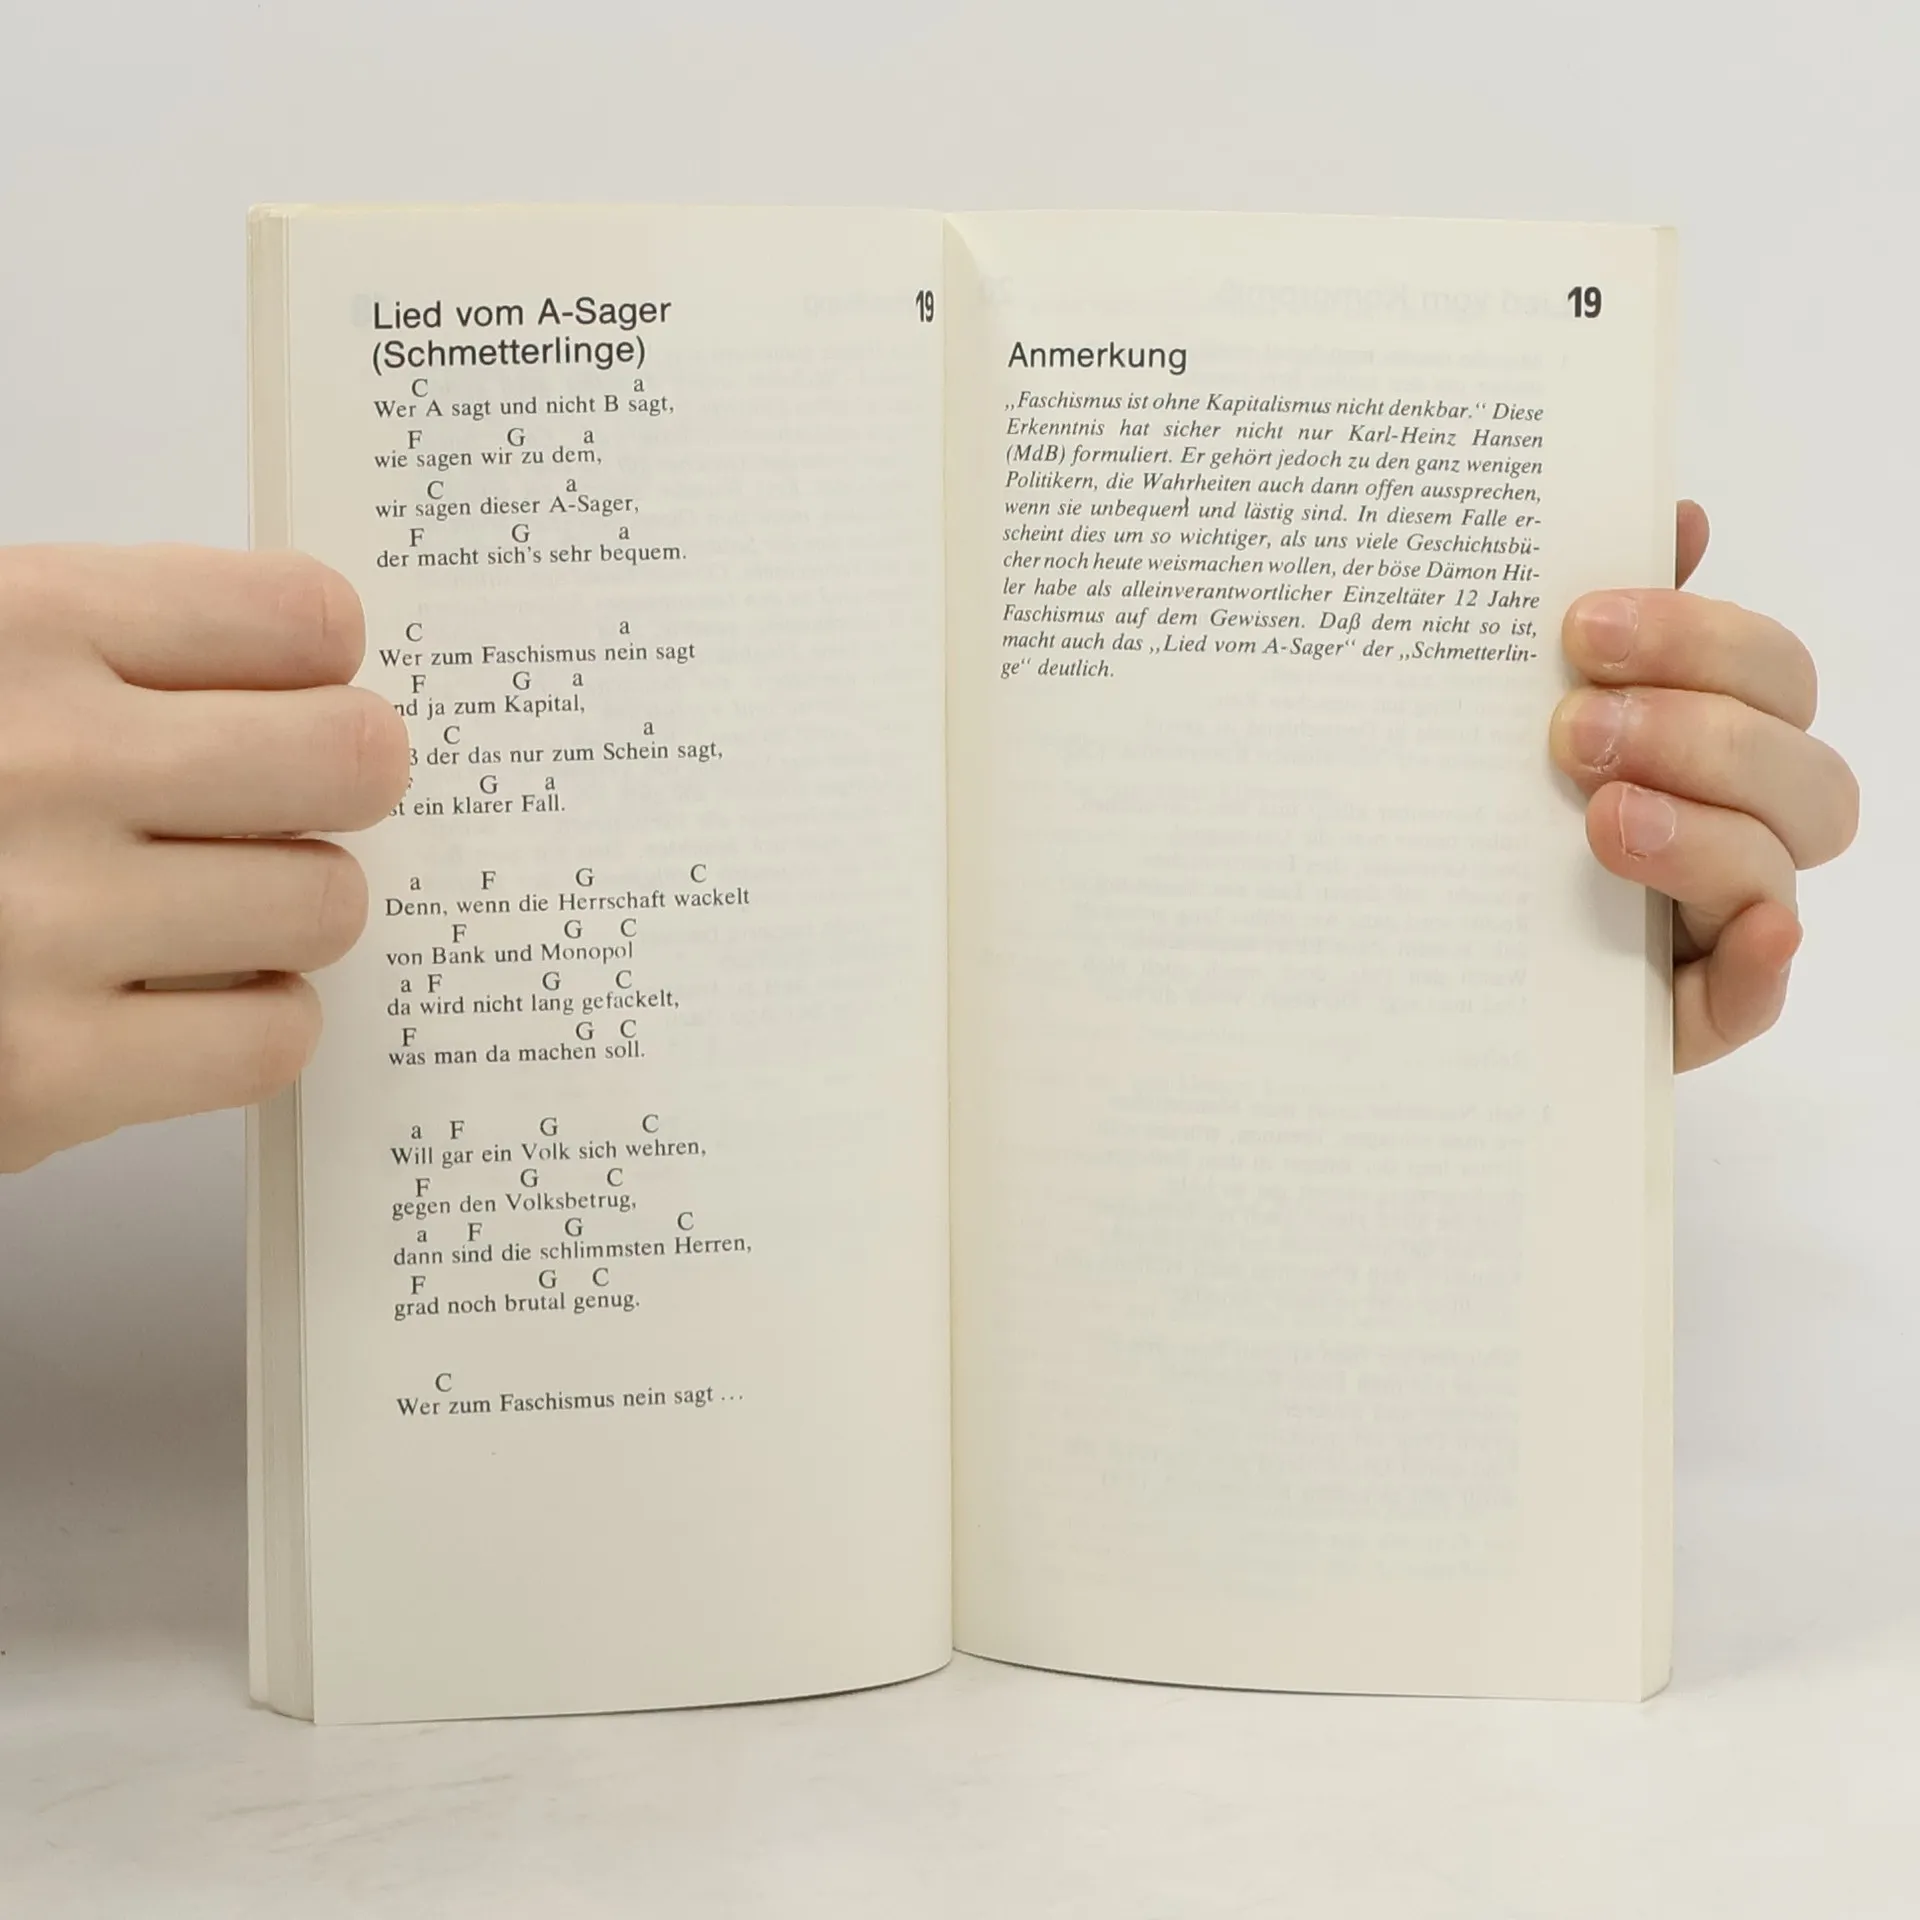 Lied vom A-Sager 19
(Schmetterlinge)
C a
Wer A sagt und nicht B sagt,
F G a
wie sagen wir zu dem,
C a
wir sagen dieser A-Sager,
F G a
der macht sich's sehr bequem.
C a
Wer zum Faschismus nein sagt
F G a
ja zum Kapital,
C a
der das nur zum Schein sagt,
G a
ein klarer Fall.
a F G C
Denn, wenn die Herrschaft wackelt
F G C
von Bank und Monopol
a F G C
da wird nicht lang gefackelt,
F G C
was man da machen soll.
a F G C
Will gar ein Volk sich wehren,
F G C
gegen den Volksbetrug,
a F G C
dann sind die schlimmsten Herren,
F G C
grad noch brutal genug.
C
Wer zum Faschismus nein sagt ...
19
Anmerkung
„Faschismus ist ohne Kapitalismus nicht denkbar.“ Diese
Erkenntnis hat sicher nicht nur Karl-Heinz Hansen
(MdB) formuliert. Er gehört jedoch zu den ganz wenigen
Politikern, die Wahrheiten auch dann offen aussprechen,
wenn sie unbequem und lästig sind. In diesem Falle er-
scheint dies um so wichtiger, als uns viele Geschichtsbü-
cher noch heute weismachen wollen, der böse Dämon Hit-
ler habe als alleinverantwortlicher Einzeltäter 12 Jahre
Faschismus auf dem Gewissen. Daß dem nicht so ist,
macht auch das „Lied vom A-Sager“ der „Schmetterlin-
ge“ deutlich.